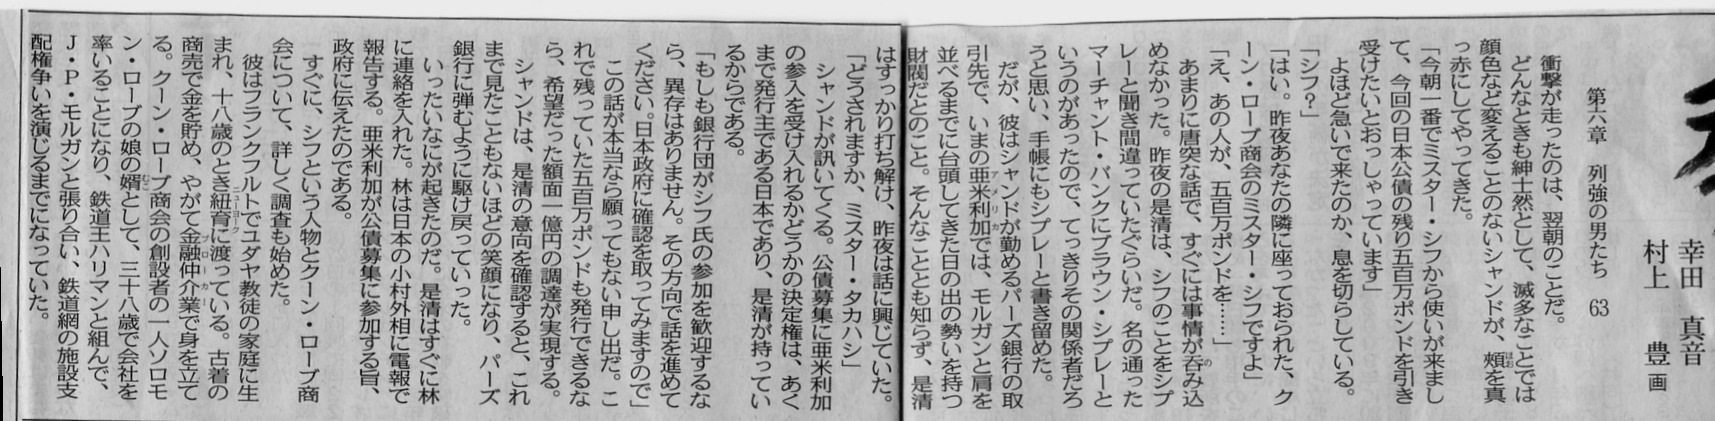 幸田 真音
村上 豊 画
第六章 列強の男たち 63
衝撃が走ったのは、翌朝のことだ。
どんなときも紳士然として、滅多なことでは
顔色など変えることのないシャンドが、頰を真
っ赤にしてやってきた。
「今朝一番でミスター・シフから使いが来まし
て、今回の日本公債の残り五百万ポンドを引き
受けたいとおっしゃっています」
よほど急いで来たのか、息を切らしている。
「シフ?」
「はい。昨夜あなたの隣に座っておられた、ク
ーン・ローブ商会のミスター・シフですよ」
「え、あの人が、五百万ポンドを……」
あまりに唐突な話で、すぐには事情が呑み込
めなかった。昨夜の是清は、シフのことをシプ
レーと聞き間違っていたぐらいだ。名の通った
マーチャント・バンクにブラウン・シプレーと
いうのがあったので、てっきりその関係者だろ
うと思い、手帳にもシプレーと書き留めた。
だが、彼はシャンドが勤めるパーズ銀行の取
引先で、いまの亜米利加では、モルガンと肩を
並べるまでに台頭してきた日の出の勢いを持つ
財閥だとのこと。そんなこととも知らず、是清
はすっかり打ち解け、昨夜は話に興じていた。
「どうされますか、ミスター・タカハシ」
シャンドが訊いてくる。公債募集に亜米利加
の参入を受け入れるかどうかの決定権は、あく
まで発行主である日本であり、是清が持ってい
るからである。
「もしも銀行団がシフ氏の参加を歓迎するな
ら、異存はありません。その方向で話を進めて
ください。日本政府に確認を取ってみますので」
この話が本当なら願ってもない申し出だ。こ
れで残っていた五百万ポンドも発行できるな
ら、希望だった額面一億円の調達が実現する。
シャンドは、是清の意向を確認すると、これ
まで見たこともないほどの笑顔になり、パーズ
銀行に弾むように駆け戻っていった。
いったいなにが起きたのだ。是清はすぐに林
に連絡を入れた。林は日本の小村外相に電報で
報告する。亜米利加が公債募集に参加する旨、
政府に伝えたのである。
すぐに、シフという人物とクーン・ローブ商
会について、詳しく調査も始めた。
彼はフランクフルトでユダヤ教徒の家庭に生
まれ、十八歳のとき紐育に渡っている。古着の
商売で金を貯め、やがて金融仲介業で身を立て
る。クーン・ローブ商会の創設者の一人ソロモ
ン・ローブの娘の婿として、三十八歳で会社を
率いることになり、鉄道王ハリマンと組んで、
J・P・モルガンと張り合い、鉄道網の施設支
配権争いを演じるまでになっていた。